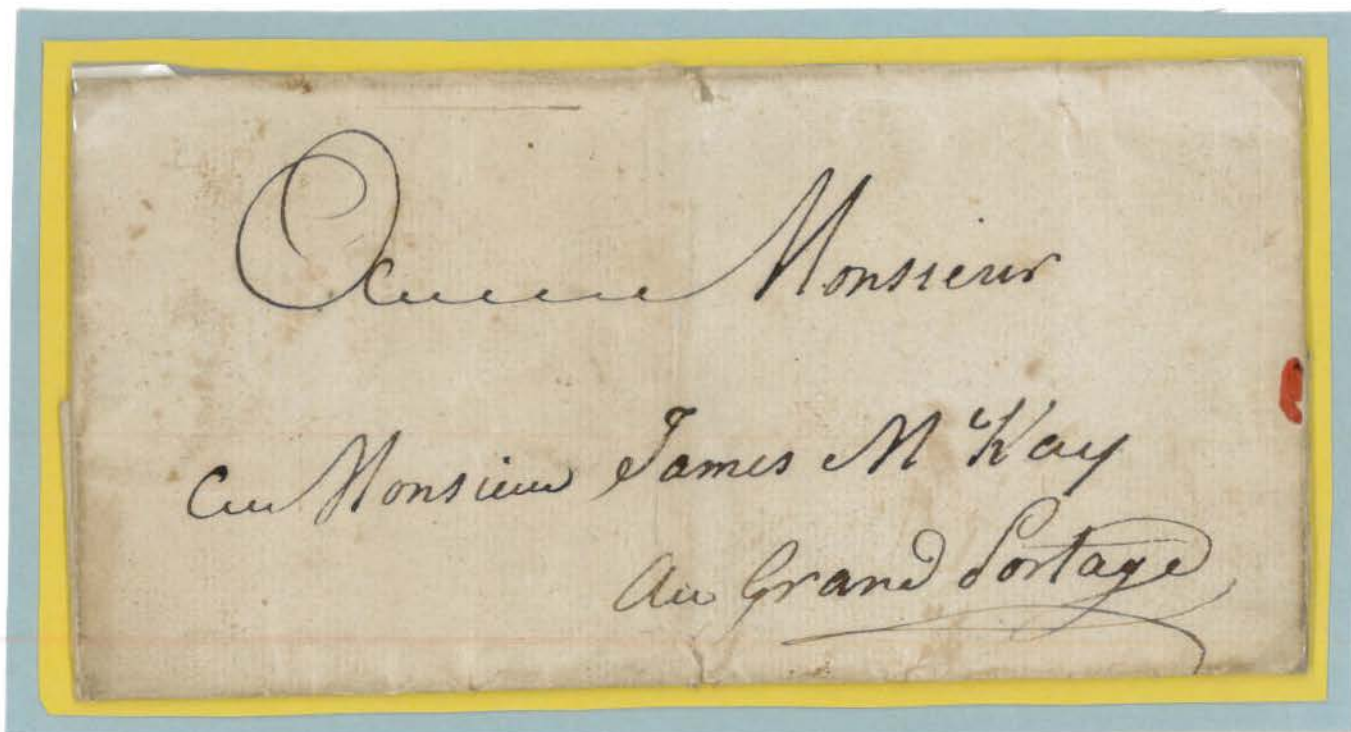 A Monsieur
Monsieur James McKay
Au Grand Portage